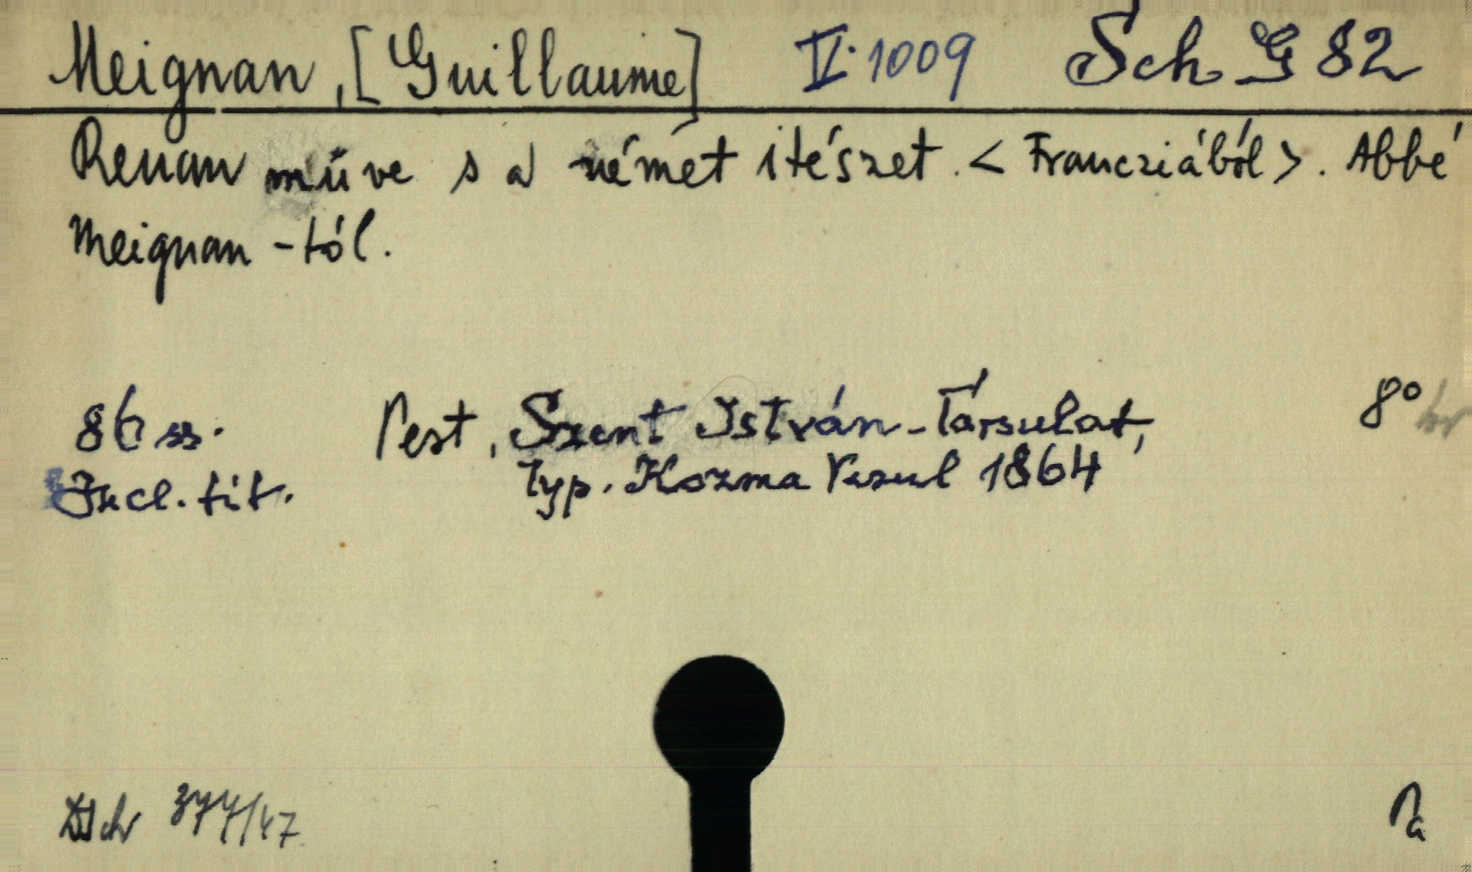 Meignan, [Guillaume] IV. 1009 Sch G 82
Renan müve s a német itészet. < Francziából >. Abbé
Meignan-tól.
86 ss. Pest, Szent István-Társulat, 8°
Incl. tit. Typ. Kozma Vazul 1864
377/47